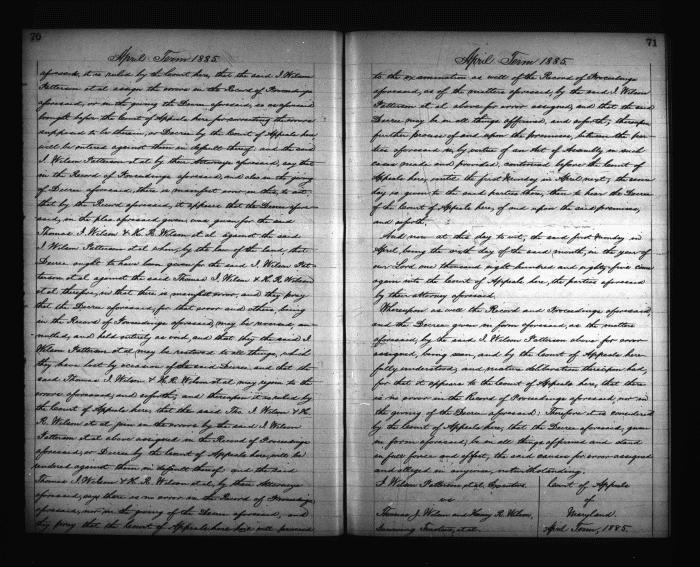 70
April Term 1885
aforesaid, it is ruled by the Court here, that the said J. Wilson
Patterson et al assign the errors in the Record of Proceedings
aforesaid, or in the giving the Decree aforesaid, so as aforesaid
brought before the Court of Appeals here for correcting the errors
supposed to be therein, or Decree by the Court of Appeals here
will be entered against them in default thereof and the said
J. Wilson Patterson et al by their Attorneys aforesaid, say that
in the Record of Proceedings aforesaid, and also in the giving
of Decree aforesaid, there is manifest error in this to wit,
that by the Record aforesaid, it appears that the Decree afore-
said, in the plea aforesaid given, was given for the said
Thomas J. Wilson & H. R. Wilson et al against the said
J. Wilson Patterson et al when, by the law of the land, that
Decree ought to have been given for the said J. Wilson Pat-
terson et al against the said Thomas J. Wilson & H. R. Wilson
et al therefore, in that there is manifest error, and they pray
that the Decree aforesaid, for that error and others, being
in the Record of Proceedings aforesaid, may be reversed, an-
nulled, and held entirely as void, and that they the said J.
Wilson Patterson et al may be restored to all things, which
they have lost by occasion of the said Decree and that the
said Thomas J. Wilson & H. R. Wilson et al may rejoin to the
errors aforesaid; and soforth; and thereupon it is ruled by
the Court of Appeals here, that the said Tho. J. Wilson & H.
R. Wilson et al join in the errors by the said J. Wilson
Patterson et al above assigned in the Record of Proceedings
aforesaid, or Decree by the Court of Appeals here, will be
rendered against them in default thereof and the said
Thomas J. Wilson & H. R. Wilson et al, by their Attorneys
aforesaid, says there is no error in the Record of Proceedings
aforesaid, nor in the giving of the Decree aforesaid, and
they pray that the Court of Appeals here will proceed
71
April Term 1885
to the examination as well of the Record of Proceedings
aforesaid, as of the matters aforesaid, by the said J. Wilson
Patterson et al above for error assigned, and that the said
Decree may be in all things affirmed, and soforth; thereupon
further process of and upon the premises, between the par-
ties aforesaid is by virtue of an Act of Assembly in such
cases made and provided, continued before the Court of
Appeals here, until the first Monday in April next; the same
day is given to the said parties then, there to hear the Decree
of the Court of Appeals here, of and upon the said premises,
and soforth.
And now at this day to wit, the said first Monday in
April, being the sixth day of the said month, in the year of
our Lord one thousand eight hundred and eighty five came
again into the Court of Appeals here, the parties aforesaid
by their attorneys aforesaid.
Whereupon as well the Record and Proceedings aforesaid,
and the Decree given in form aforesaid, as the matters
aforesaid, by the said J. Wilson Patterson above for error
assigned, being seen, and by the Court of Appeals here
fully understood, and mature deliberation thereupon had,
for that it appears to the Court of Appeals here, that there
is no error in the Record of Proceedings aforesaid, nor in
the giving of the Decree aforesaid: Therefore it is considered
by the Court of Appeals here, that the Decree aforesaid, given
in form aforesaid, be in all things affirmed and stand
in full force and effect, the said causes for error assigned
and alleged in anywise, notwithstanding.
J. Wilson Patterson, et al. Executors
vs
Thomas J. Wilson and Henry R. Wilson,
Surviving Trustees, et al.
Court of Appeals
of
Maryland.
April Term, 1885.